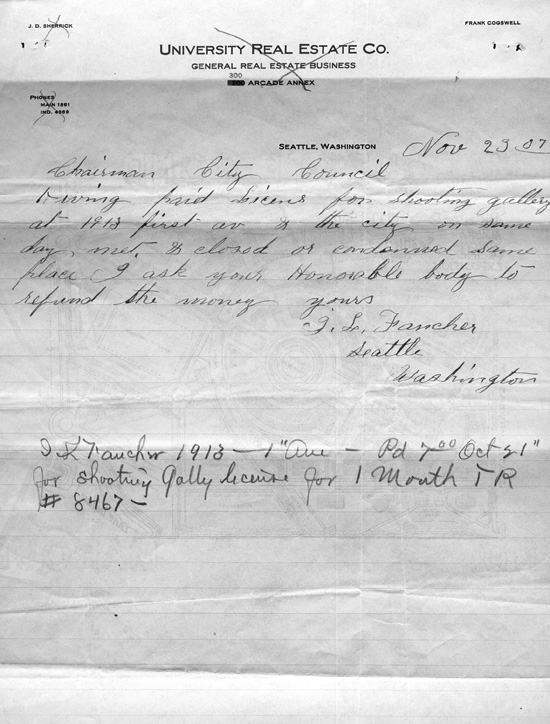 J. D. SHERRICK
FRANK COGSWELL
UNIVERSITY REAL ESTATE CO.
GENERAL REAL ESTATE BUSINESS
300
ARCADE ANNEX
PHONES
MAIN 1861
IND. 4069
SEATTLE, WASHINGTON
Nov 23 07
Chairman City Council
Having paid licens for shooting gallery
at 1913 first av & the city on same
day met, & closed or condemned same
place I ask your Honorable body to
refund the money yours
I. L. Fancher
Seattle
Washington
I L Fancher 1913 — 1" Ave — Pd 7 00 Oct 21"
for shooting Gally license for 1 Month T R
# 8467 —